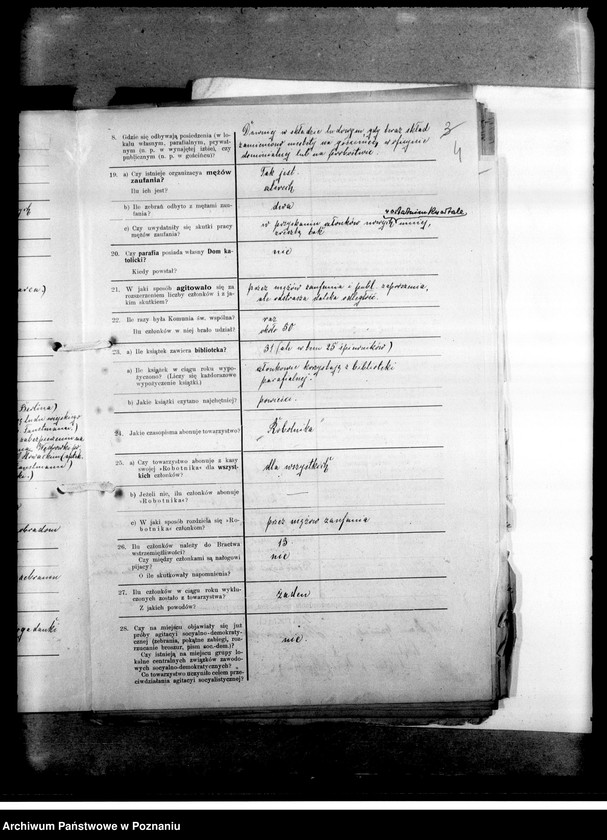 8. Gdzie się odbywają posiedzenia (w lo-
kalu własnym, parafialnym, prywat-
nym (n. p. w wynajętej izbie), czy
publicznym (n. p. w gościńcu)?
Dawniej w składzie ludowym, gdy teraz skład
zamieniono niestety na gościniec, w oficynie
dominialnej lub na probostwie.
3
4
19. a) Czy istnieje organizacya mężów
zaufania? Tak jest.
Ilu ich jest? czterech
b) Ile zebrań odbyto z mężami zau-
fania? dwa
c) Czy uwydatniły się skutki pracy
mężów zaufania?
w pozyskaniu członków nowych mniej,
zresztą tak
20. Czy parafia posiada własny Dom ka-
tolicki? nie
Kiedy powstał?
21. W jaki sposób agitowało się za
rozszerzeniem liczby członków i z ja-
kim skutkiem?
przez mężów zaufania i publ. zaproszenia,
ale odstrasza daleka odległość.
22. Ile razy była Komunia św. wspólna? raz
Ilu członków w niej brało udział? około 30
23. a) Ile książek zawiera biblioteka? 31 (ale w tem 25 śpiewników)
a) Ile książek w ciągu roku wypo-
życzono? (Liczy się każdorazowe
wypożyczenie książki)
członkowie korzystają z biblioteki
parafialnej.
b) Jakie książki czytano najchętniej? powieści.
24. Jakie czasopisma abonuje towarzystwo? „Robotnika"
25. a) Czy towarzystwo abonuje z kasy
swojej »Robotnika« dla wszyst-
kich członków? dla wszystkich
b) Jeżeli nie, ilu członków abonuje
»Robotnika«? —
c) W jaki sposób rozdziela się »Ro-
botnika« członkom? przez mężów zaufania
26. Ilu członków należy do Bractwa
wstrzemięźliwości? 13
Czy między członkami są nałogowi
pijacy? nie
O ile skutkowały napomnienia?
27. Ilu członków w ciągu roku wyklu-
czonych zostało z towarzystwa? żaden
Z jakich powodów?
28. Czy na miejscu objawiały się już
próby agitacyi socyalno-demokraty-
cznej (zebrania, pokątne zabiegi, roz-
rzucanie broszur, pism soc.-dem.)? nie.
Czy istnieją na miejscu grupy lo-
kalne centralnych związków zawodo-
wych socyalno-demokratycznych?
Co towarzystwo uczyniło celem prze-
ciwdziałania agitacyi socyalistycznej?
Archiwum Państwowe w Poznaniu